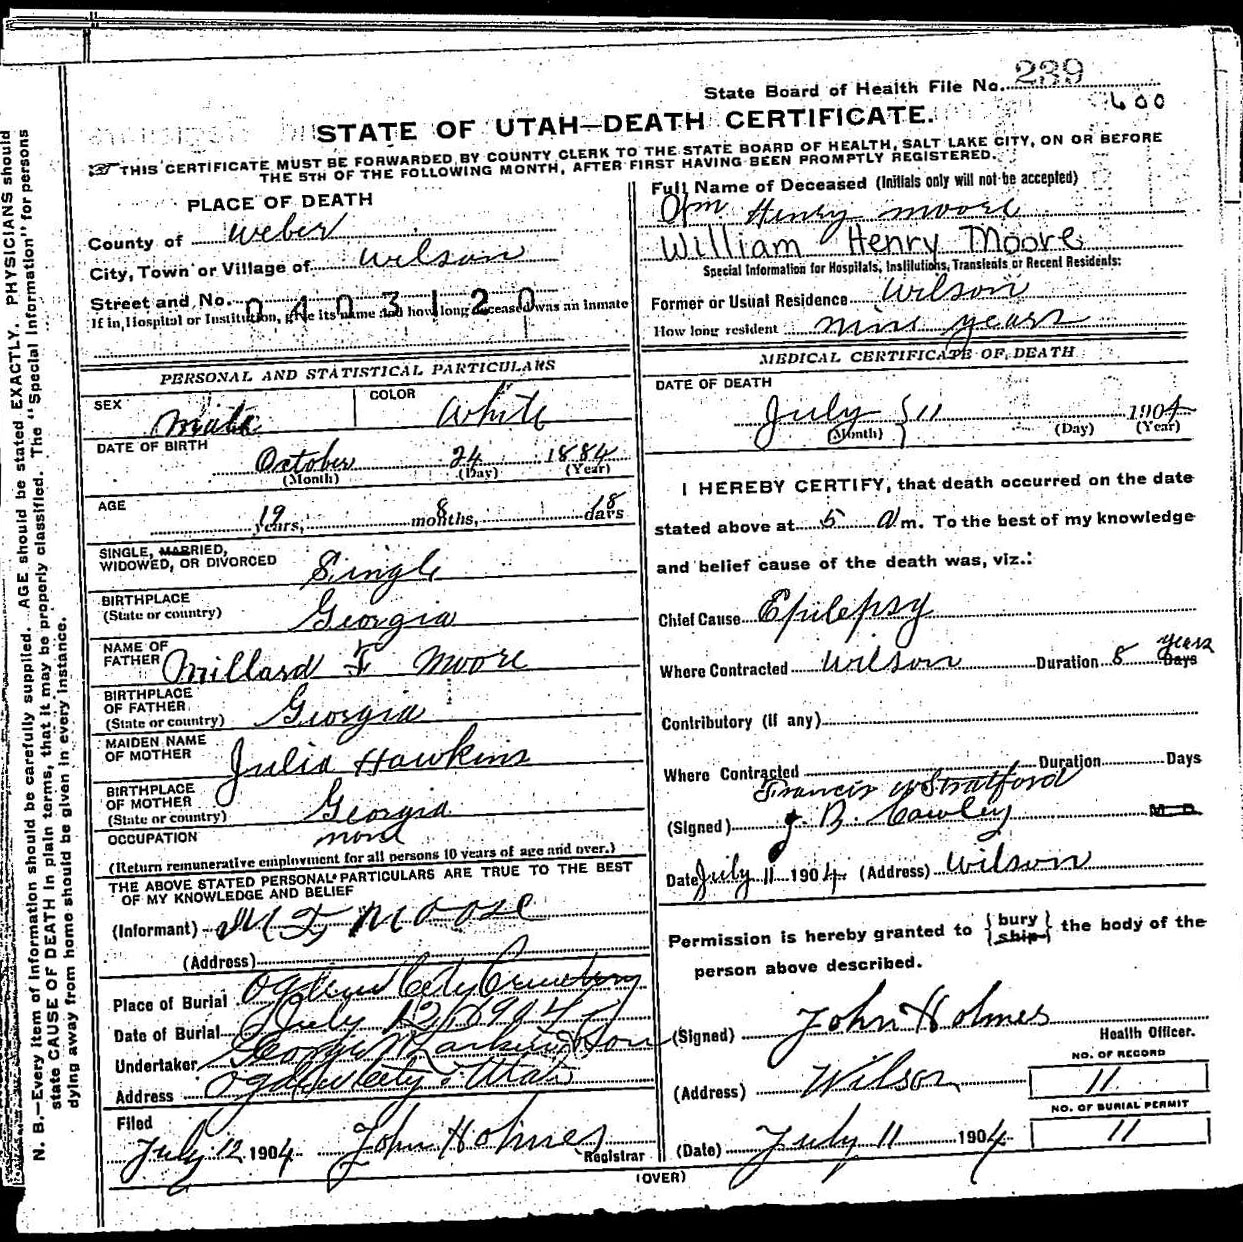 State Board of Health File No. 239
600
STATE OF UTAH—DEATH CERTIFICATE.
THIS CERTIFICATE MUST BE FORWARDED BY COUNTY CLERK TO THE STATE BOARD OF HEALTH, SALT LAKE CITY, ON OR BEFORE
THE 5TH OF THE FOLLOWING MONTH, AFTER FIRST HAVING BEEN PROMPTLY REGISTERED.
PLACE OF DEATH
County of Weber
City, Town or Village of Wilson
Street and No. 0403120
If in Hospital or Institution, give its name and how long deceased was an inmate
Full Name of Deceased (Initials only will not be accepted)
Wm Henry Moore
William Henry Moore
Special Information for Hospitals, Institutions, Transients or Recent Residents:
Former or Usual Residence Wilson
How long resident nine years
PERSONAL AND STATISTICAL PARTICULARS
SEX Male
COLOR White
DATE OF BIRTH
October 24 1884
(Month) (Day) (Year)
AGE
19 years, 8 months, 18 days
SINGLE, MARRIED,
WIDOWED, OR DIVORCED Single
BIRTHPLACE
(State or country) Georgia
NAME OF
FATHER Millard F Moore
BIRTHPLACE
OF FATHER
(State or country) Georgia
MAIDEN NAME
OF MOTHER Julia Hawkins
BIRTHPLACE
OF MOTHER
(State or country) Georgia
OCCUPATION none
(Return remunerative employment for all persons 10 years of age and over.)
THE ABOVE STATED PERSONAL PARTICULARS ARE TRUE TO THE BEST
OF MY KNOWLEDGE AND BELIEF
(Informant) M F Moore
(Address)
Place of Burial Ogden City Cemetery
Date of Burial July 12 1904
Undertaker George Larkin & Son
Address Ogden City Utah
Filed
July 12 1904 John Holmes
Registrar
MEDICAL CERTIFICATE OF DEATH
DATE OF DEATH
July 11 1904
(Month) (Day) (Year)
I HEREBY CERTIFY, that death occurred on the date
stated above at 5 a m. To the best of my knowledge
and belief cause of the death was, viz.:
Chief Cause Epilepsy
Where Contracted Wilson Duration 8 years Days
Contributory (if any)
Where Contracted Duration Days
Francis W Stratford
(Signed) J. B. Cawley M. D.
Date July 11 1904 (Address) Wilson
Permission is hereby granted to {bury ship} the body of the
person above described.
(Signed) John Holmes
Health Officer.
(Address) Wilson
NO. OF RECORD
11
NO. OF BURIAL PERMIT
11
(Date) July 11 1904
(OVER)
N. B.—Every item of information should be carefully supplied. AGE should be stated EXACTLY. PHYSICIANS should
state CAUSE OF DEATH in plain terms, that it may be properly classified. The "Special Information" for persons
dying away from home should be given in every instance.